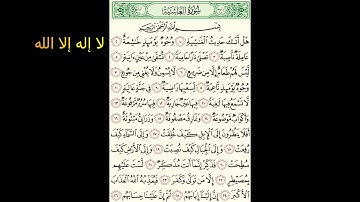 سُورَةُ الغَاشِيَةِ
بِسْمِ اللَّهِ الرَّحْمَٰنِ الرَّحِيمِ
هَلْ أَتَىٰكَ حَدِيثُ الْغَٰشِيَةِ ١ وُجُوهٌ يَوْمَئِذٍ خَٰشِعَةٌ ٢
عَامِلَةٌ نَّاصِبَةٌ ٣ تَصْلَىٰ نَارًا حَامِيَةً ٤ تُسْقَىٰ مِنْ عَيْنٍ ءَانِيَةٍ ٥
لَّيْسَ لَهُمْ طَعَامٌ إِلَّا مِن ضَرِيعٍ ٦ لَّا يُسْمِنُ وَلَا يُغْنِي مِن جُوعٍ ٧
وُجُوهٌ يَوْمَئِذٍ نَّاعِمَةٌ ٨ لِّسَعْيِهَا رَاضِيَةٌ ٩ فِي جَنَّةٍ عَالِيَةٍ ١٠
لَّا تَسْمَعُ فِيهَا لَٰغِيَةً ١١ فِيهَا عَيْنٌ جَارِيَةٌ ١٢ فِيهَا سُرُرٌ مَّرْفُوعَةٌ ١٣
وَأَكْوَابٌ مَّوْضُوعَةٌ ١٤ وَنَمَارِقُ مَصْفُوفَةٌ ١٥ وَزَرَابِيُّ مَبْثُوثَةٌ ١٦
أَفَلَا يَنظُرُونَ إِلَى الْإِبِلِ كَيْفَ خُلِقَتْ ١٧ وَإِلَى السَّمَاءِ كَيْفَ
رُفِعَتْ ١٨ وَإِلَى الْجِبَالِ كَيْفَ نُصِبَتْ ١٩ وَإِلَى الْأَرْضِ كَيْفَ
سُطِحَتْ ٢٠ فَذَكِّرْ إِنَّمَا أَنتَ مُذَكِّرٌ ٢١ لَّسْتَ عَلَيْهِم
بِمُصَيْطِرٍ ٢٢ إِلَّا مَن تَوَلَّىٰ وَكَفَرَ ٢٣ فَيُعَذِّبُهُ اللَّهُ الْعَذَابَ
الْأَكْبَرَ ٢٤ إِنَّ إِلَيْنَا إِيَابَهُمْ ٢٥ ثُمَّ إِنَّ عَلَيْنَا حِسَابَهُم ٢٦
لا إله إلا الله